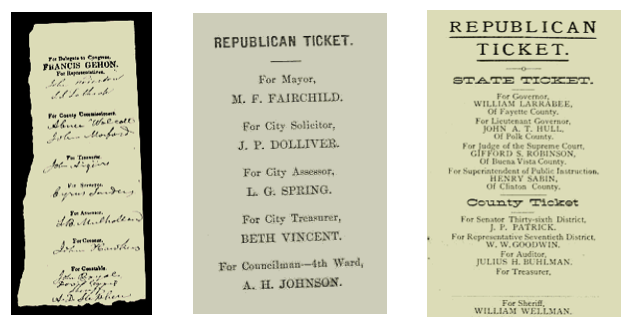 For Delegate to Congress,
FRANCIS GEHON.
For Representatives,
For County Commissioners,
John Morford
For Treasurer,
For Surveyor,
For Assessor,
For Coroner,
For Constable,
REPUBLICAN TICKET.
For Mayor,
M. F. FAIRCHILD.
For City Solicitor,
J. P. DOLLIVER.
For City Assessor,
L. G. SPRING.
For City Treasurer,
BETH VINCENT.
For Councilman—4th Ward,
A. H. JOHNSON.
REPUBLICAN
TICKET.
STATE TICKET.
For Governor,
WILLIAM LARRABEE,
Of Fayette County.
For Lieutenant Governor,
JOHN A. T. HULL,
Of Polk County.
For Judge of the Supreme Court,
GIFFORD S. ROBINSON,
Of Buena Vista County.
For Superintendent of Public Instruction,
HENRY SABIN,
Of Clinton County.
County Ticket
For Senator Thirty-sixth District,
J. P. PATRICK.
For Representative Seventieth District,
W. W. GOODWIN.
For Auditor,
JULIUS H. BUHLMAN.
For Treasurer,
For Sheriff,
WILLIAM WELLMAN.